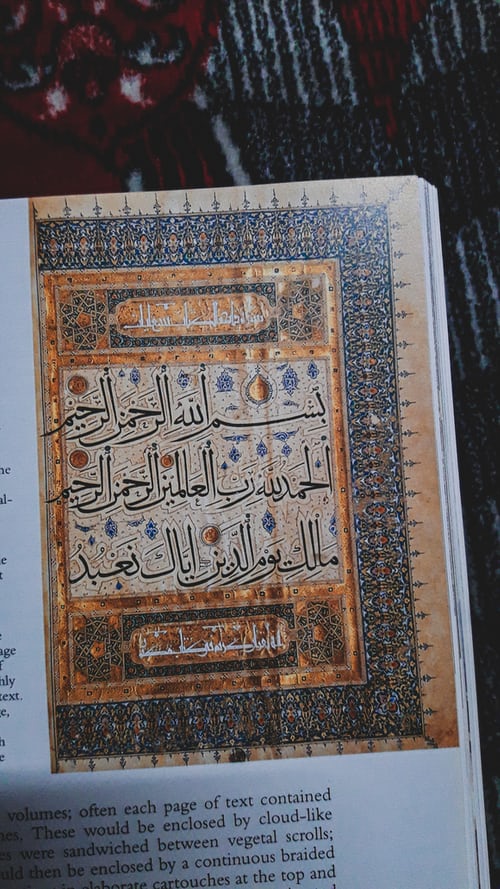 بِسْمِ اللَّهِ الرَّحْمَنِ الرَّحِيمِ
الْحَمْدُ لِلَّهِ رَبِّ الْعَالَمِينَ الرَّحْمَنِ الرَّحِيمِ
مَالِكِ يَوْمِ الدِّينِ إِيَّاكَ نَعْبُدُ
al-
text.
volumes; often each page of text contained
These would be enclosed by cloud-like
were sandwiched between vegetal scrolls;
then be enclosed by a continuous braided
in elaborate cartouches at the top and